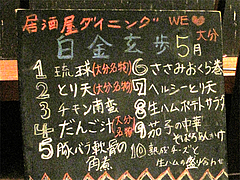 居酒屋ダイニング WE♥大分
白金玄歩 5月
1 琉球(大分名物)
2 とり天(大分名物)
3 チキン南蛮
4 だんご汁(大分名物)
5 豚バラ軟骨の角煮
6 ささみおくら巻
7 ヘルシーとり天
8 生ハムポテトサラダ
9 茄子の中華
10 熟成チーズと生ハムの盛り合わせ